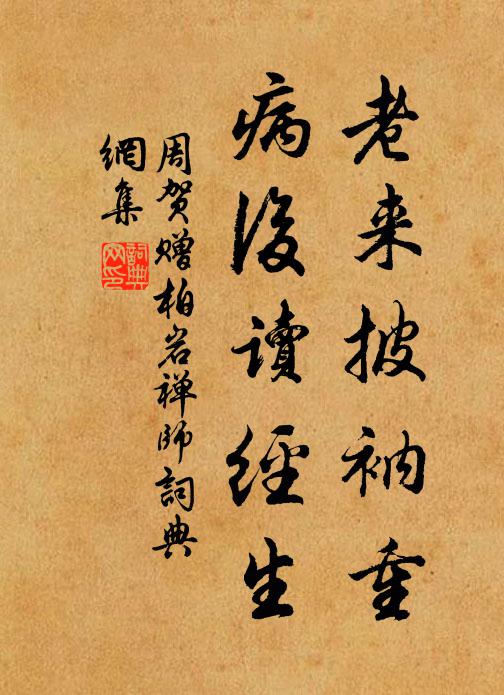 老来披衲重
病後讀經生
周贺赠柏岩禅师詞典
網集
詞典
网印